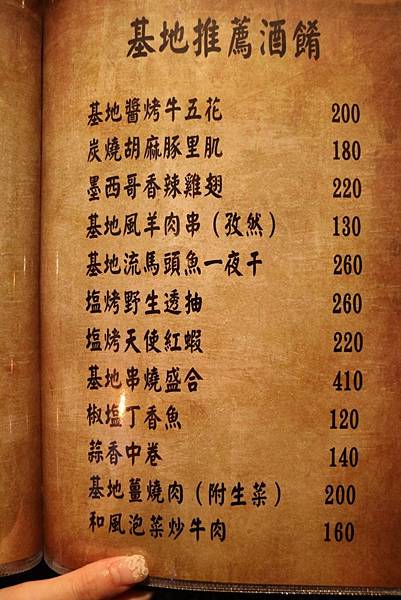 基地推薦酒餚
基地醬烤牛五花 200
炭燒胡麻豚里肌 180
墨西哥香辣雞翅 220
基地風羊肉串（孜然） 130
基地流馬頭魚一夜干 260
塩烤野生透抽 260
塩烤天使紅蝦 220
基地串燒盛合 410
椒塩丁香魚 120
蒜香中卷 140
基地薑燒肉（附生菜） 200
和風泡菜炒牛肉 160